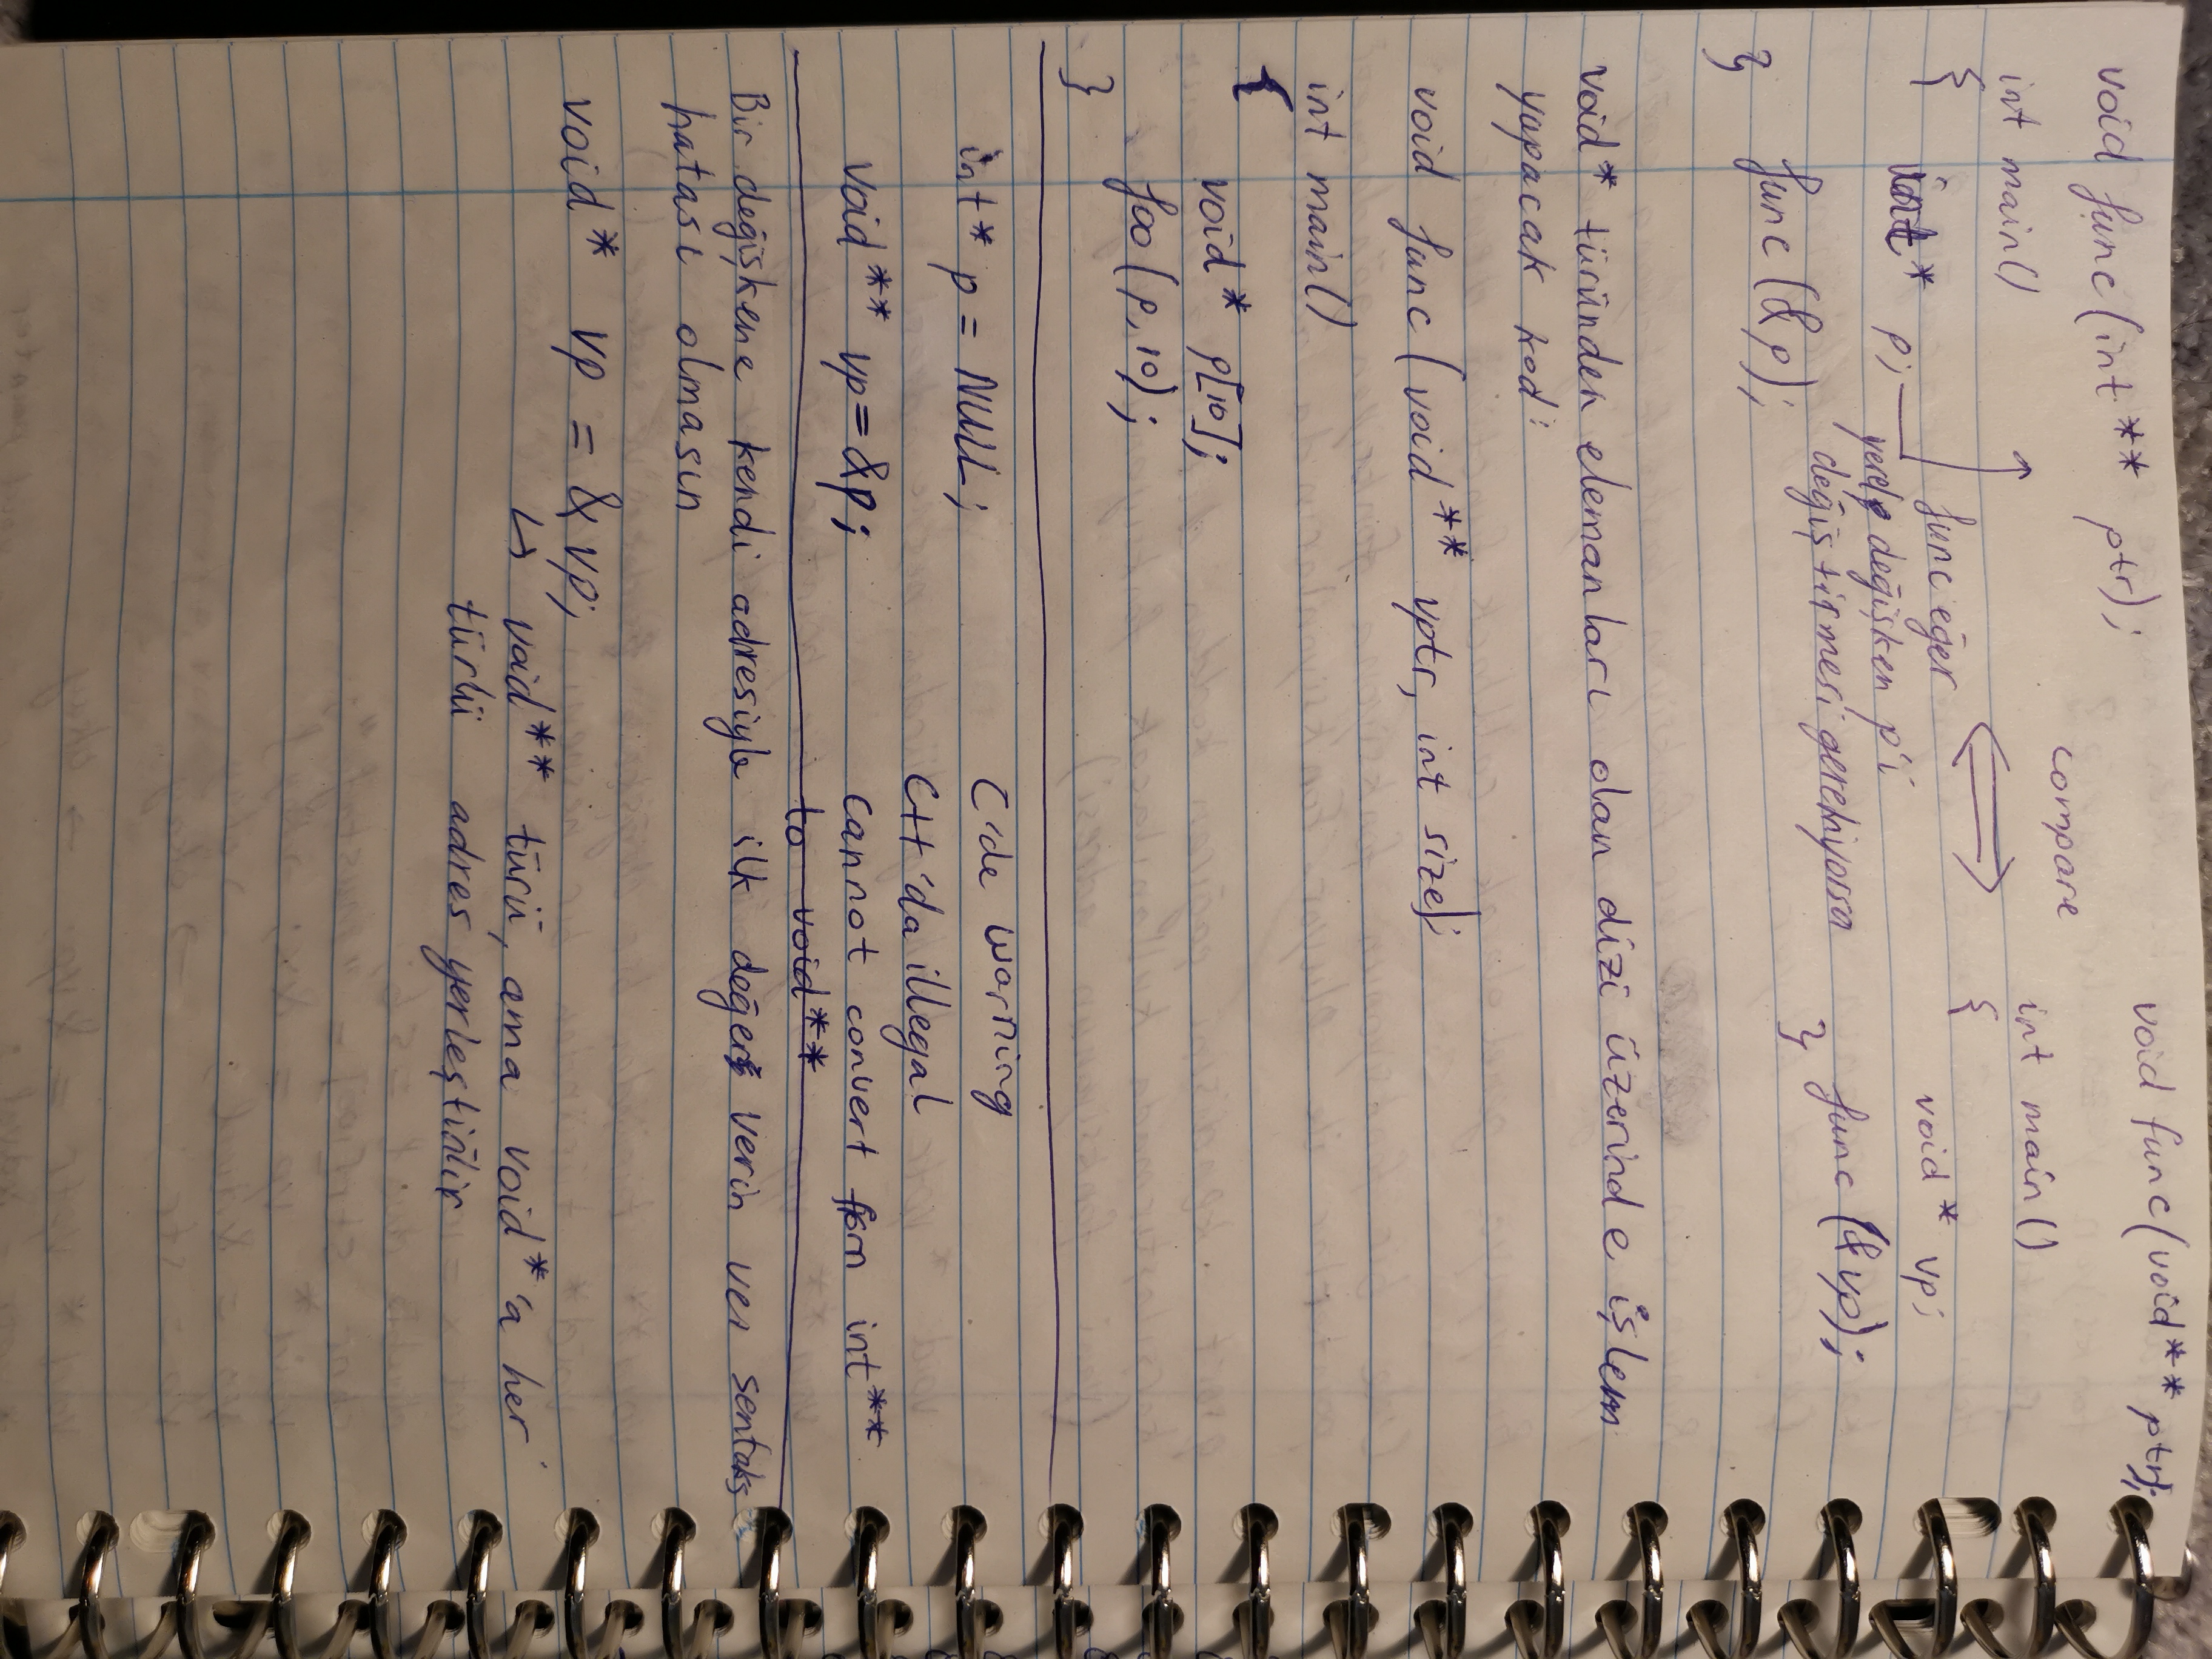 void func(int** ptr);
int main()
{
int* p;
func(&p);
}
func eğer
yerel değişken p'i
değiştirmesi gerekiyorsa
compare
void func(void** ptr);
int main()
{
void* vp;
func(&vp);
}
void* türünden elemanları olan dizi üzerinde işlem
yapacak kod:
void func(void** vptr, int size);
int main()
{
void* p[10];
foo(p,10);
}
int* p = NULL;
void** vp=&p;
C'de warning
C++'da illegal
cannot convert from int**
to void**
Bir değişkene kendi adresiyle ilk değer verin ver sentaks
hatası olmasın
void* vp = &vp;
↳ void** türü, ama void*'a her
türlü adres yerleştirilir